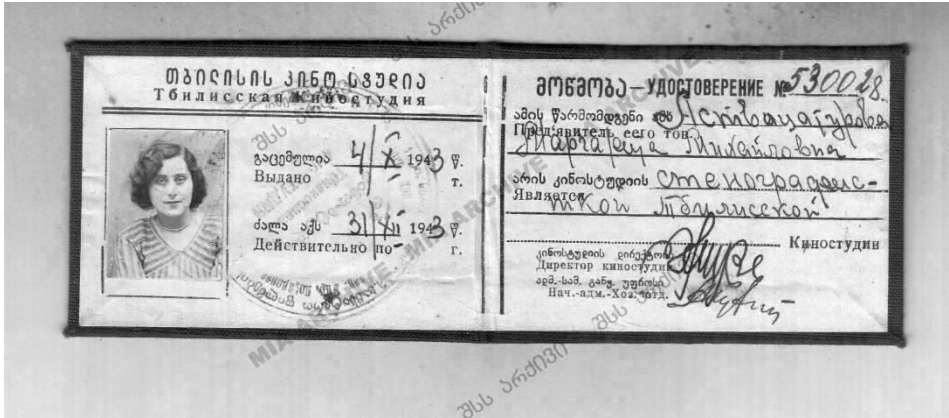 თბილისის კინო სტუდია
Тбилисская Киностудия
გაცემულია 4/X 1943 წ.
Выдано г.
ძალა აქვს 31/XII 1943 წ.
Действительно по г.
მოწმობა — УДОСТОВЕРЕНИЕ № 530028
ამის წარმომდგენი ამხ. Аствацатурова
Предъявитель сего тов.
Маргарита Михайловна
არის კინოსტუდიის стенографис-
Является ткой Тбилисской
Киностудии
კინოსტუდიის დირექტორი
Директор киностудии
ადმ.-სამ. განყ. უფროსი
Нач.-адм.-Хоз. отд.
შსს არქივი
MIA ARCHIVE
შსს არქივი
MIA ARCHIVE
MIA ARCHIVE
შსს
შსს არქივი